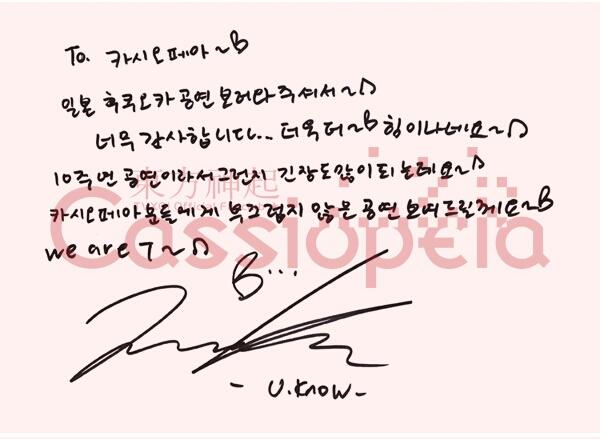 To. 카시오페아~B
일본 후쿠오카 공연 보러와 주셔서~♪
너무 감사합니다... 더욱 더~B 힘이나네요~♪
10주년 공연이라서 그런지 긴장도 많이 되는데요~♪
東方神起
카시오페아분들에게 부끄럽지 않은 공연 보여드릴께요~B
we are T~♪
Cassiopeia
B...
- U.Know -